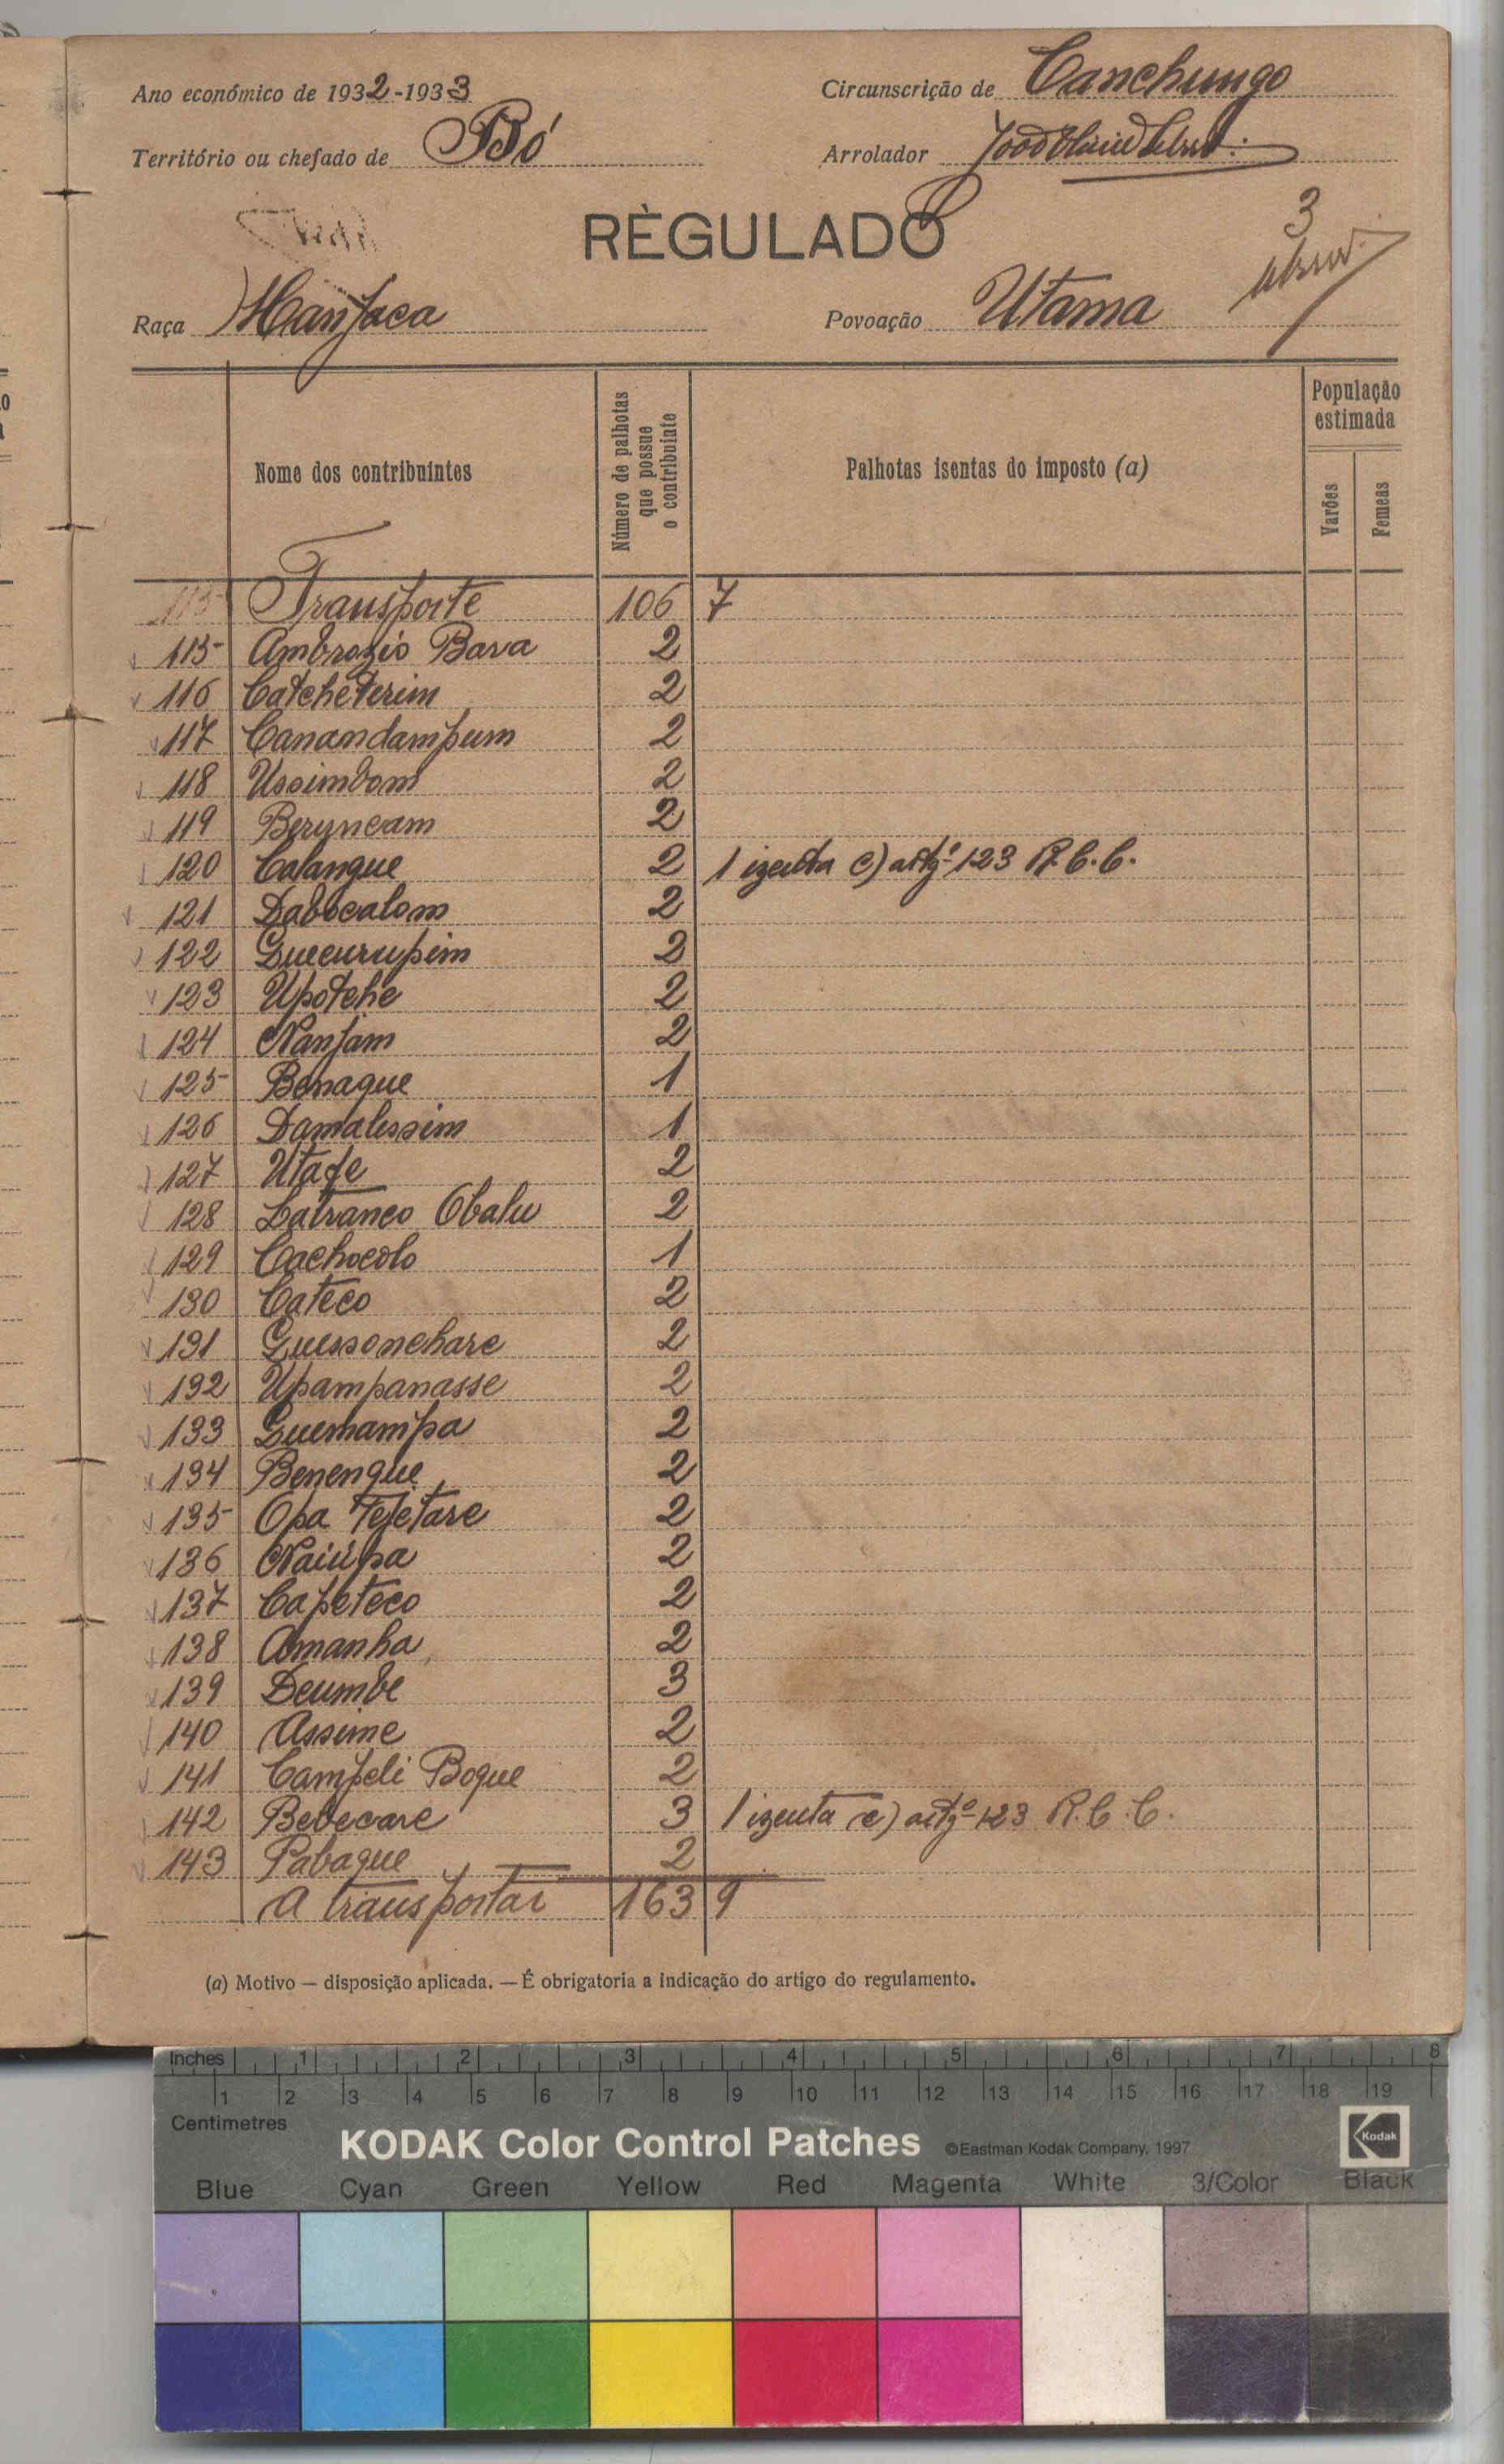 Ano económico de 1932-1933
Circunscrição de Canchungo
Território ou chefado de Bó
Arrolador
RÈGULADO
3
Raça Manjaca
Povoação Utama
Nome dos contribuintes
Número de palhotas que possue o contribuinte
Palhotas isentas do imposto (a)
População estimada
Varões
Femeas
Transporte 106 7
115 Ambrozio Bava 2
116 Catcheterim 2
117 Canandampum 2
118 Ussimbom 2
119 Beryncam 2
120 Calangue 2 1 izenta c) artgº 123 R.C.C.
121 Dabocalom 2
122 Guecurupim 2
123 Upotche 2
124 Nanjam 2
125 Benaque 1
126 Damalissim 1
127 Utafe 2
128 Latranco Obalu 2
129 Cachocolo 1
130 Cateco 2
131 Guessonchare 2
132 Upampanasse 2
133 Guemampa 2
134 Benengue 2
135 Opa Tejetare 2
136 Naiúpa 2
137 Capeteco 2
138 Amanha 2
139 Deumbe 3
140 Assime 2
141 Campeli Boque 2
142 Bebecare 3 1 izenta c) artgº 123 R.C.C.
143 Pabaque 2
A transportar 163 9
(a) Motivo — disposição aplicada. — É obrigatoria a indicação do artigo do regulamento.
Inches 1 2 3 4 5 6 7 8
1 2 3 4 5 6 7 8 9 10 11 12 13 14 15 16 17 18 19
Centimetres
KODAK Color Control Patches ©Eastman Kodak Company, 1997 Kodak
Blue Cyan Green Yellow Red Magenta White 3/Color Black